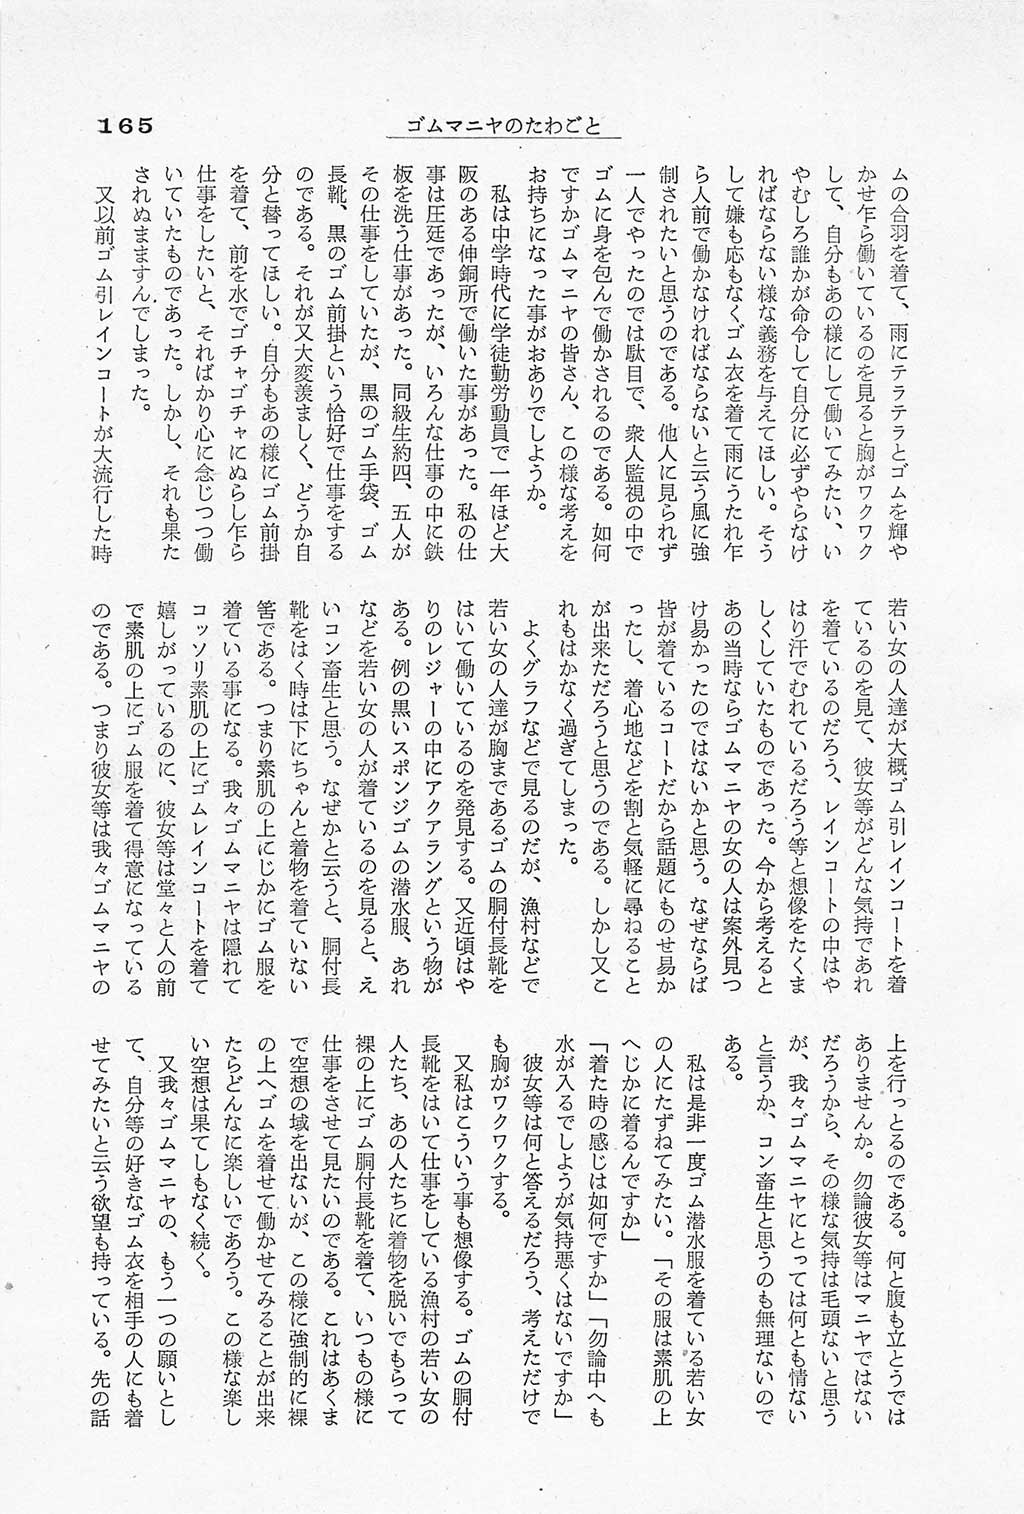 165
ゴムマニヤのたわごと
ムの合羽を着て、雨にテラテラとゴムを輝や
かせ乍ら働いているのを見ると胸がワクワク
して、自分もあの様にして働いてみたい、い
やむしろ誰かが命令して自分に必ずやらなけ
ればならない様な義務を与えてほしい。そう
して嫌も応もなくゴム衣を着て雨にうたれ乍
ら人前で働かなければならないと云う風に強
制されたいと思うのである。他人に見られず
一人でやったのでは駄目で、衆人監視の中で
ゴムに身を包んで働かされるのである。如何
ですかゴムマニヤの皆さん、この様な考えを
お持ちになった事がおありでしようか。
私は中学時代に学徒勤労動員で一年ほど大
阪のある伸銅所で働いた事があった。私の仕
事は圧延であったが、いろんな仕事の中に鉄
板を洗う仕事があった。同級生約四、五人が
その仕事をしていたが、黒のゴム手袋、ゴム
長靴、黒のゴム前掛という恰好で仕事をする
のである。それが又大変羨ましく、どうか自
分と替ってほしい。自分もあの様にゴム前掛
を着て、前を水でゴチャゴチャにぬらし乍ら
仕事をしたいと、そればかり心に念じつつ働
いていたものであった。しかし、それも果た
されぬまますんでしまった。
又以前ゴム引レインコートが大流行した時
若い女の人達が大概ゴム引レインコートを着
ているのを見て、彼女等がどんな気持であれ
を着ているのだろう、レインコートの中はや
はり汗でむれているだろう等と想像をたくま
しくしていたものであった。今から考えると
あの当時ならゴムマニヤの女の人は案外見つ
け易かったのではないかと思う。なぜならば
皆が着ているコートだから話題にものせ易か
ったし、着心地などを割と気軽に尋ねること
が出来ただろうと思うのである。しかし又こ
れもはかなく過ぎてしまった。
よくグラフなどで見るのだが、漁村などで
若い女の人達が胸まであるゴムの胴付長靴を
はいて働いているのを発見する。又近頃はや
りのレジャーの中にアクアラングという物が
ある。例の黒いスポンジゴムの潜水服、あれ
などを若い女の人が着ているのを見ると、え
いコン畜生と思う。なぜかと云うと、胴付長
靴をはく時は下にちゃんと着物を着ていない
筈である。つまり素肌の上にじかにゴム服を
着ている事になる。我々ゴムマニヤは隠れて
コッソリ素肌の上にゴムレインコートを着て
嬉しがっているのに、彼女等は堂々と人の前
で素肌の上にゴム服を着て得意になっている
のである。つまり彼女等は我々ゴムマニヤの
上を行っとるのである。何と腹も立とうでは
ありませんか。勿論彼女等はマニヤではない
だろうから、その様な気持は毛頭ないと思う
が、我々ゴムマニヤにとっては何とも情ない
と言うか、コン畜生と思うのも無理ないので
ある。
私は是非一度ゴム潜水服を着ている若い女
の人にたずねてみたい。「その服は素肌の上
へじかに着るんですか」
「着た時の感じは如何ですか」「勿論中へも
水が入るでしようが気持悪くはないですか」
彼女等は何と答えるだろう、考えただけで
も胸がワクワクする。
又私はこういう事も想像する。ゴムの胴付
長靴をはいて仕事をしている漁村の若い女の
人たち、あの人たちに着物を脱いでもらって
裸の上にゴム胴付長靴を着て、いつもの様に
仕事をさせて見たいのである。これはあくま
で空想の域を出ないが、この様に強制的に裸
の上へゴムを着せて働かせてみることが出来
たらどんなに楽しいであろう。この様な楽し
い空想は果てしもなく続く。
又我々ゴムマニヤの、もう一つの願いとし
て、自分等の好きなゴム衣を相手の人にも着
せてみたいと云う欲望も持っている。先の話